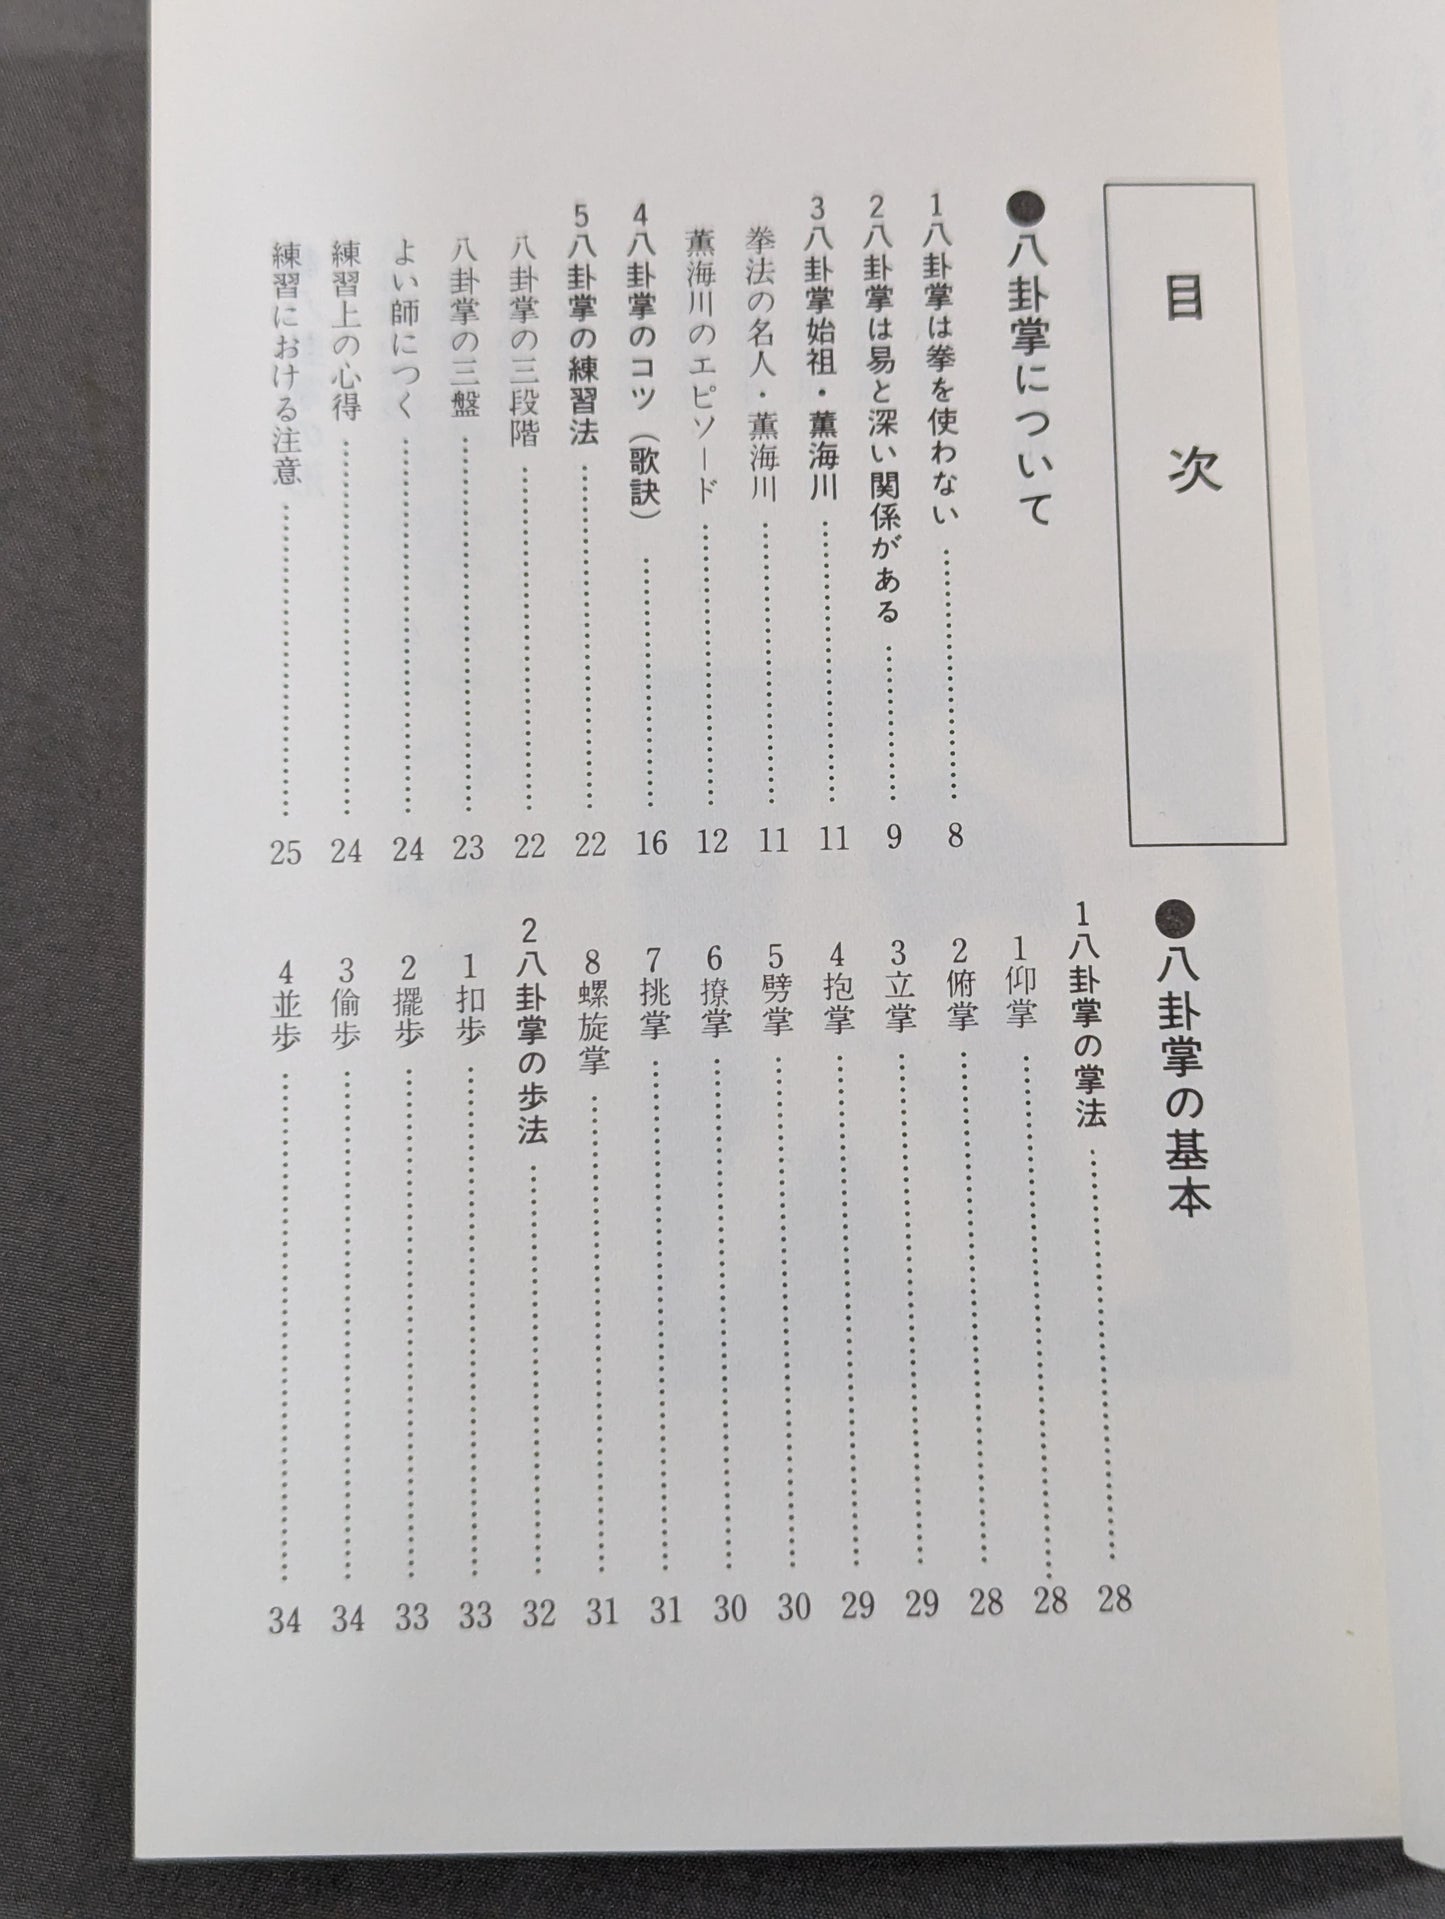 目次
●八卦掌について
1八卦掌は拳を使わない……8
2八卦掌は易と深い関係がある……9
3八卦掌始祖・薫海川……11
拳法の名人・薫海川……11
薫海川のエピソード……12
4八卦掌のコツ（歌訣）……16
5八卦掌の練習法……22
八卦掌の三段階……22
八卦掌の三盤……23
よい師につく……24
練習上の心得……24
練習における注意……25
●八卦掌の基本
1八卦掌の掌法……28
1仰掌……28
2俯掌……28
3立掌……29
4抱掌……29
5劈掌……30
6撩掌……30
7挑掌……31
8螺旋掌……31
2八卦掌の歩法……32
1扣歩……33
2擺歩……33
3偷歩……34
4並歩……34